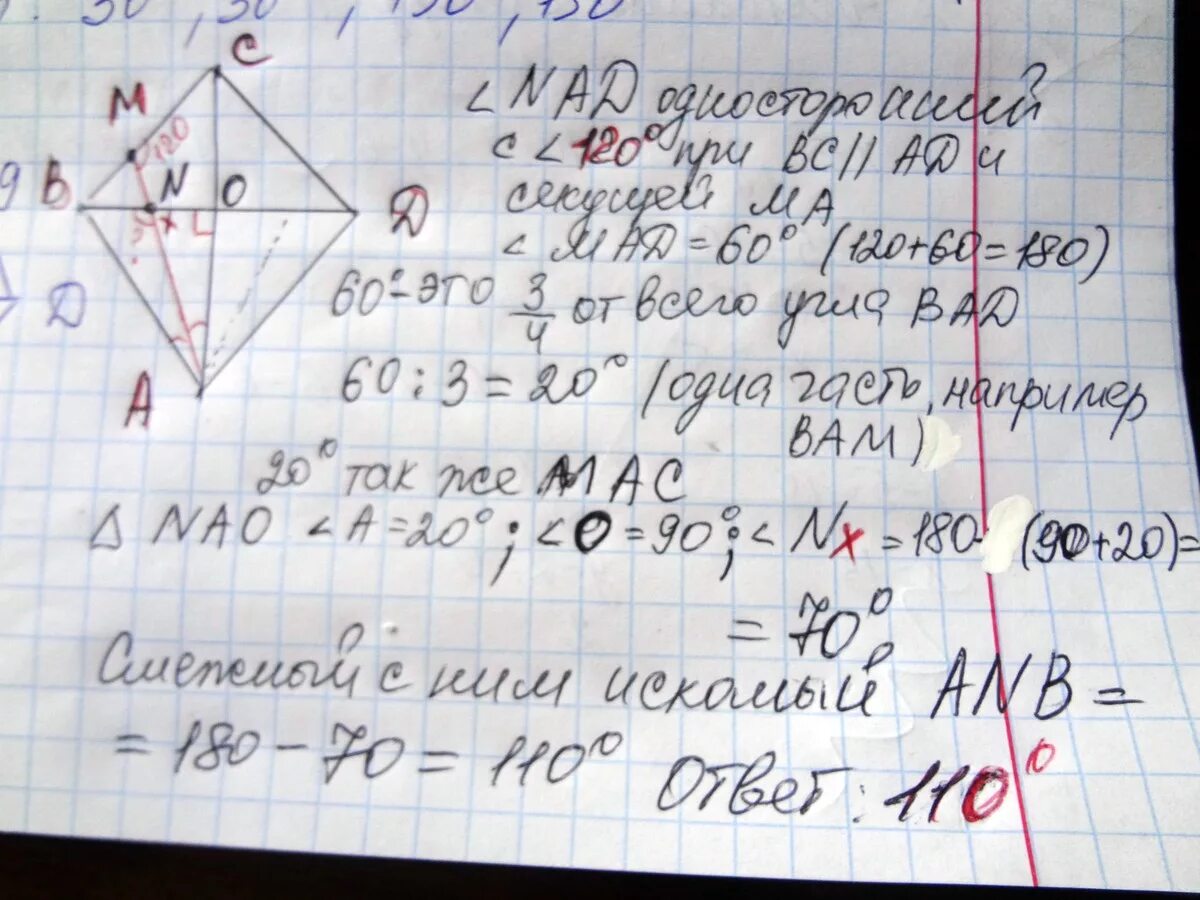 30 , 30 , 150 , 150
C
M
120
B
N
O
Д
? x
Д
A
< NAD односторонний
с < 120° при BC || AD и
секущей MA
< MAD = 60° (120+60=180)
60° - это 3/4 от всего угла BAD
60 : 3 = 20° (одна часть, например
BAM)
20° так же MAC
Δ NAO < A = 20° ; < O = 90° ; < Nx = 180 - (90+20) =
= 70°
Смежный с ним искомый ANB =
= 180 - 70 = 110°
Ответ : 110°